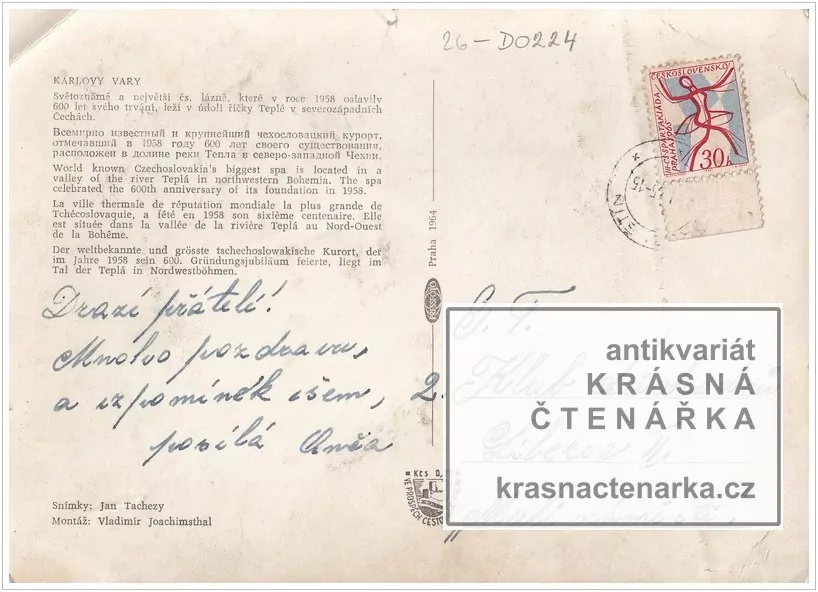 26-D0224
KARLOVY VARY
Světoznámé a největší čs. lázně, které v roce 1958 oslavily
600 let svého trvání, leží v údolí říčky Teplé v severozápadních
Čechách.
Всемирно известный и крупнейший чехословацкий курорт,
отмечавший в 1958 году 600 лет своего существования,
расположен в долине реки Тепла в северо-западной Чехии.
World known Czechoslovakia's biggest spa is located in a
valley of the river Teplá in northwestern Bohemia. The spa
celebrated the 600th anniversary of its foundation in 1958.
La ville thermale de réputation mondiale la plus grande de
Tchécoslovaquie, a fêté en 1958 son sixième centenaire. Elle
est située dans la vallée de la rivière Teplá au Nord-Ouest
de la Bohême.
Der weltbekannte und grösste tschechoslowakische Kurort, der
im Jahre 1958 sein 600. Gründungsjubiläum feierte, liegt im
Tal der Teplá in Nordwestböhmen.
Drazí přátelí!
Mnoho pozdravu,
a vzpomínek všem,
posílá Anča
Snímky: Jan Tachezy
Montáž: Vladimír Joachimsthal
Praha 1964
PRESSFOTO
Kčs 0,
VE PROSPĚCH
ČESKOSLOVENSKO
III. CS. SPARTAKIÁDA
PRAHA 1965
30h
Č. T.
2. Klub
Liberec
antikvariát
KRÁSNÁ
ČTENÁŘKA
krasnactenarka.cz